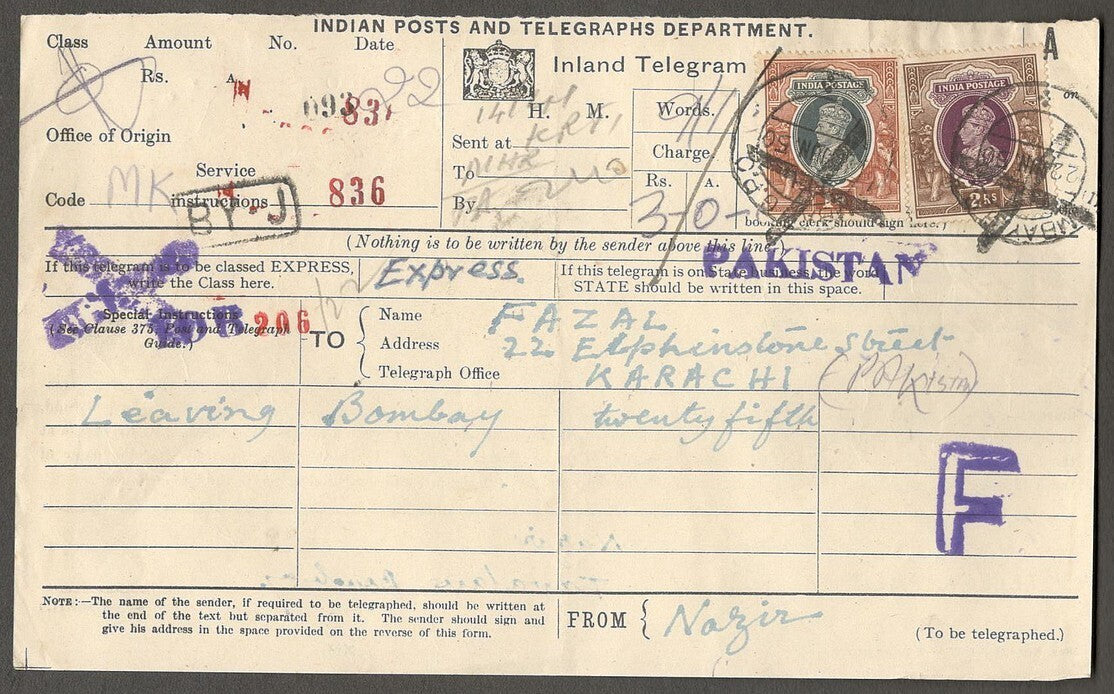 INDIAN POSTS AND TELEGRAPHS DEPARTMENT.
Class Amount No. Date
Rs. A.
093 837 22
Office of Origin
Service
Code MK instructions 836
BY-J
Inland Telegram
H. M.
Sent at
To
By
Words.
Charge.
Rs. A.
3-0-
A
on
INDIA POSTAGE
INDIA POSTAGE
2 Rs
booking clerk should sign here.)
(Nothing is to be written by the sender above this line)
PAKISTAN
If this telegram is to be classed EXPRESS, write the Class here.
Express.
If this telegram is on State business, the word STATE should be written in this space.
Special Instructions
(See Clause 375, Post and Telegraph Guide.)
206
TO
Name FAZAL
Address 22 Elphinstone Street
Telegraph Office KARACHI (PAKistan)
Leaving Bombay twenty fifth
F
NOTE:—The name of the sender, if required to be telegraphed, should be written at
the end of the text but separated from it. The sender should sign and
give his address in the space provided on the reverse of this form.
FROM Nazir
(To be telegraphed.)